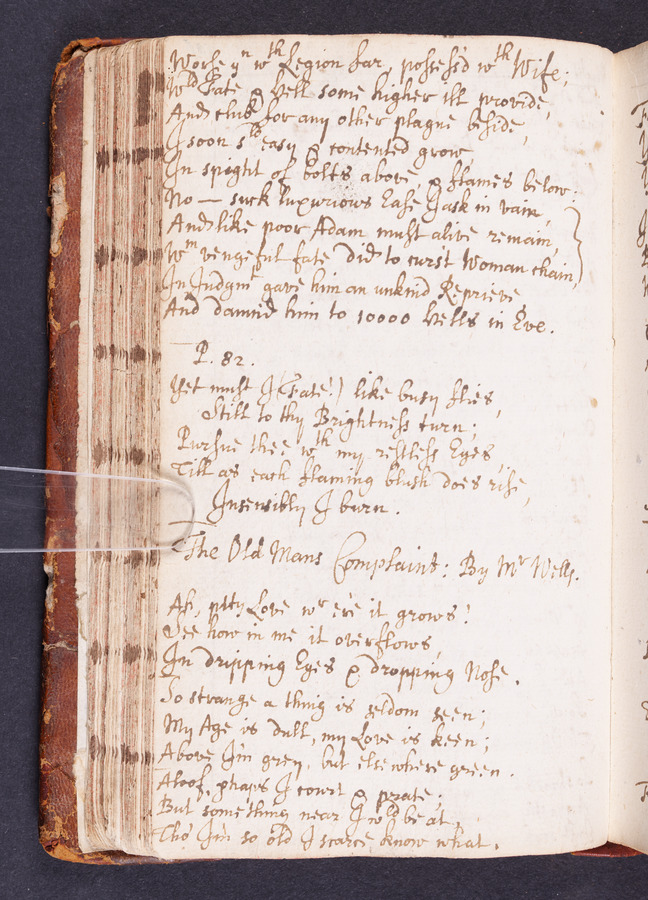 Worse yn wth Legion far, possess'd wth Wife;
Wld Fate & Hell some higher ill provide,
And club for any other plague beside,
I soon sld easy & contented grow,
In spight of bolts above & flames below:
No — such luxurious Ease I ask in vain,
And like poor Adam must alive remain,
Wm vengeful fate did to curst Woman chain,
In Judgmt gave him an unkind Reprieve,
And damn'd him to 10000 Hells in Eve.
P. 82.
Yet must I (Fate!) like busy flies,
Still to thy Brightness turn;
Pursue thee wth my restless Eyes,
Till as each flaming blush does rise,
Insensibly I burn.
The Old Mans Complaint: By Mr Wells.
Ah, pitty Love wr e're it grows!
See how in me it overflows,
In dripping Eyes & dropping Nose.
So strange a thing is seldom seen;
My Age is dull, my Love is keen;
Above I'm grey, but elsewhere green.
Aloof, phaps I court & prate;
But something near I wld be at,
Tho' I'm so old I scarce know what.